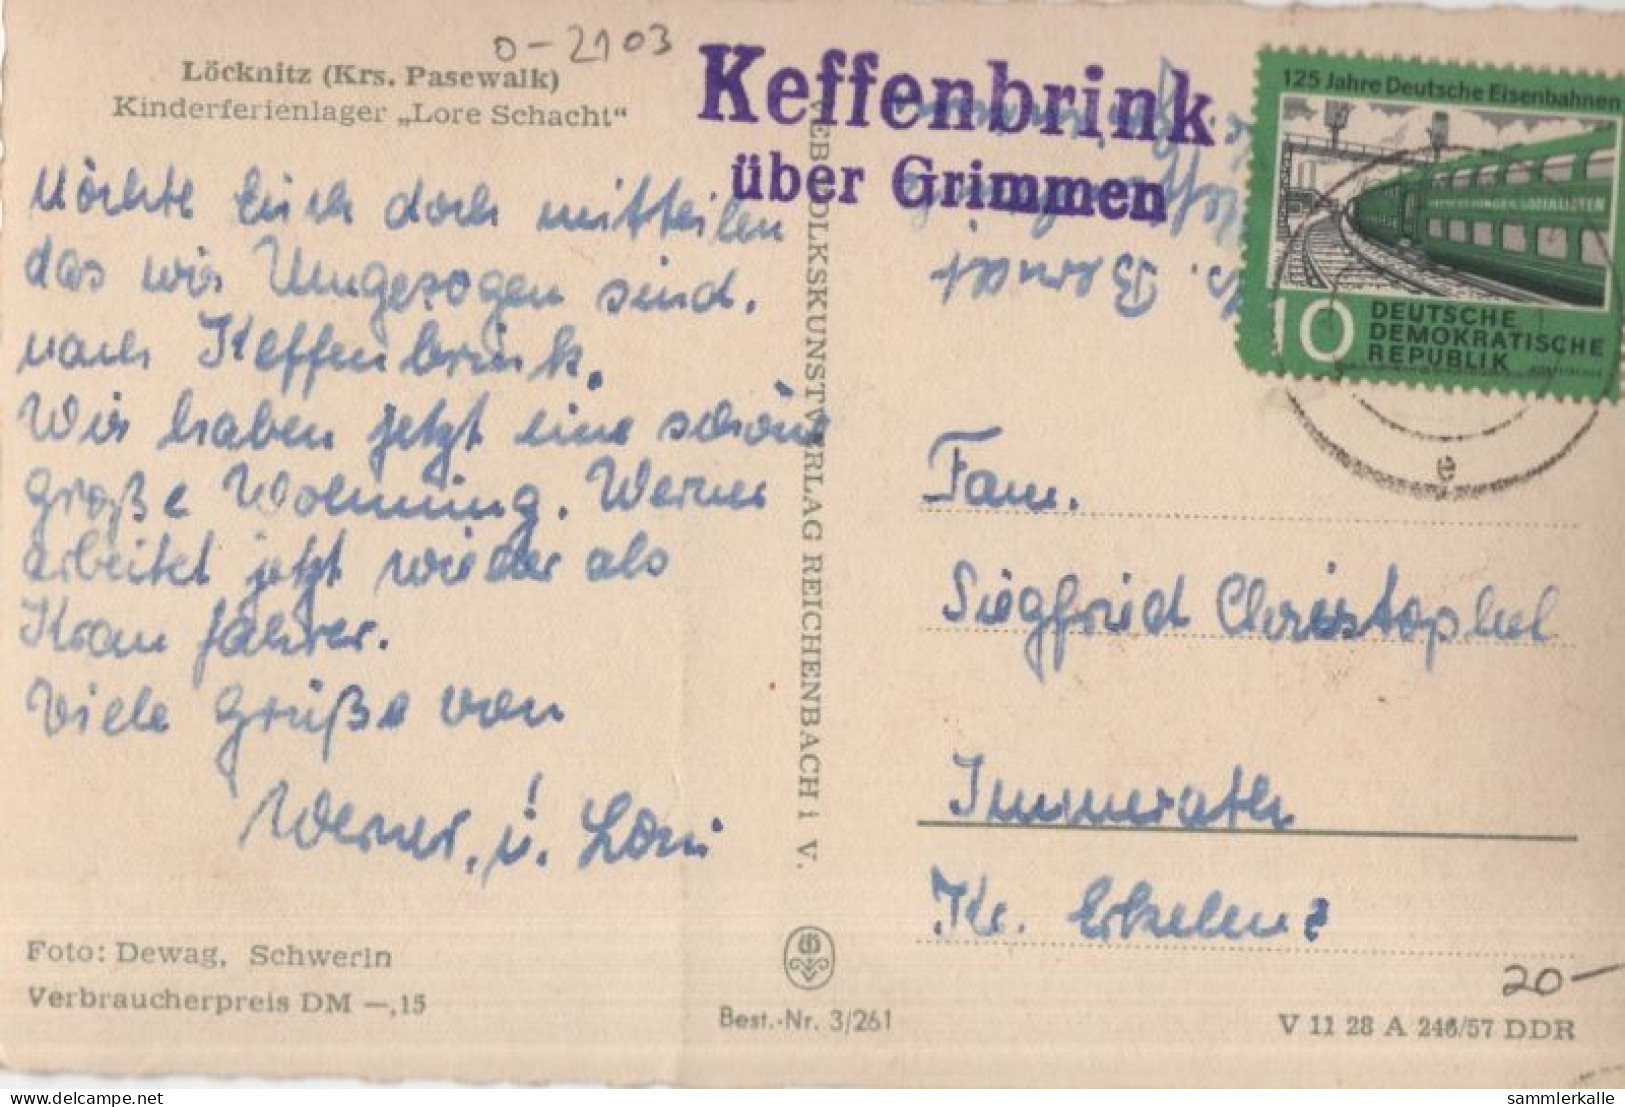 0-2103
Löcknitz (Krs. Pasewalk)
Kinderferienlager „Lore Schacht"
Möchte Euch doch mitteilen
das wir Umgezogen sind.
nach Keffenbrink.
Wir haben jetzt eine schöne
große Wohnung. Werner
arbeitet jetzt wieder als
Kran fahrer.
Viele Grüße von
Werner. u. Lori
Foto: Dewag, Schwerin
Verbraucherpreis DM —,15
VEB VOLKSKUNSTVERLAG REICHENBACH i. V.
Best.-Nr. 3/261
Keffenbrink
über Grimmen
Berndt
125 Jahre Deutsche Eisenbahnen
10 DEUTSCHE
DEMOKRATISCHE
REPUBLIK
e
Fam.
Siegfried Christophel
Immerath
Kr. Erkelenz
20-
V 11 28 A 246/57 DDR
delcampe.net
sammlerkalle